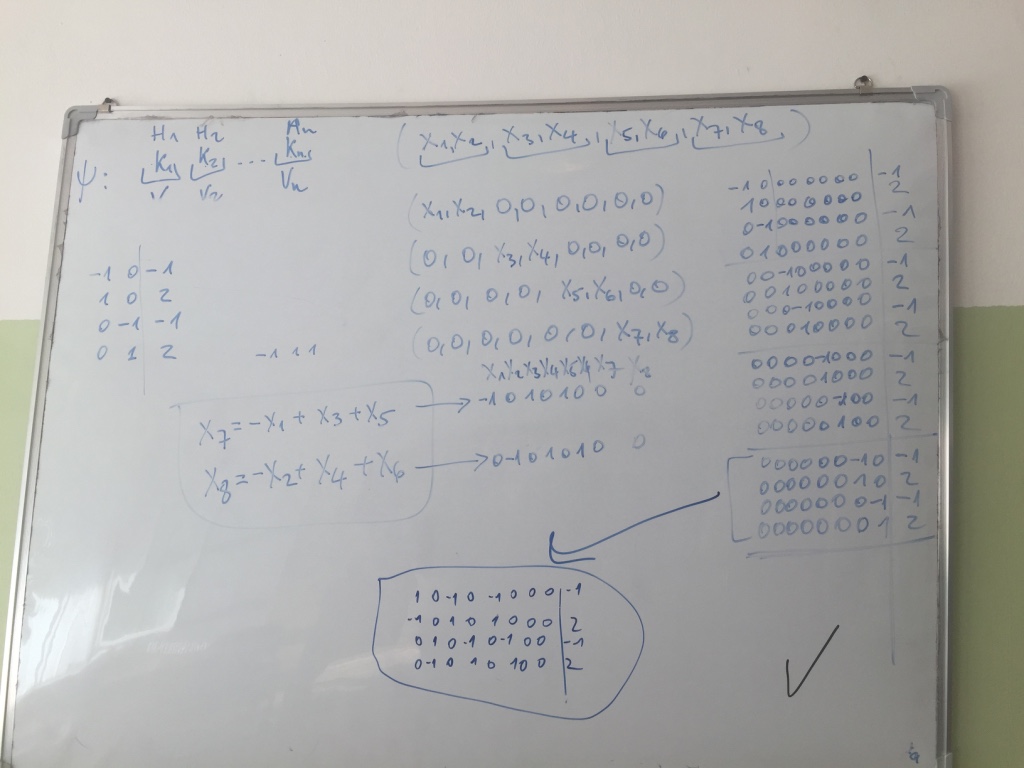 H1 H2 Hn
Ψ: K1, K2, ... Kn,
V2 Vn
-1 0 -1
1 0 2
0 -1 -1
0 1 2
-1 1 1
(x1, x2, x3, x4, x5, x6, x7, x8)
(x1, x2, 0, 0, 0, 0, 0, 0)
(0, 0, x3, x4, 0, 0, 0, 0)
(0, 0, 0, 0, x5, x6, 0, 0)
(0, 0, 0, 0, 0, 0, x7, x8)
x7 = -x1 + x3 + x5
x8 = -x2 + x4 + x6
-1 0 1 0 1 0 0 0
0 -1 0 1 0 1 0 0
-1 0 0 0 0 0 0 0 -1
1 0 0 0 0 0 0 0 2
0 -1 0 0 0 0 0 0 -1
0 1 0 0 0 0 0 0 2
0 0 -1 0 0 0 0 0 -1
0 0 1 0 0 0 0 0 2
0 0 0 -1 0 0 0 0 -1
0 0 0 1 0 0 0 0 2
0 0 0 0 -1 0 0 0 -1
0 0 0 0 1 0 0 0 2
0 0 0 0 0 -1 0 0 -1
0 0 0 0 0 1 0 0 2
0 0 0 0 0 0 -1 0 -1
0 0 0 0 0 0 1 0 2
0 0 0 0 0 0 0 -1 -1
0 0 0 0 0 0 0 1 2
1 0 -1 0 -1 0 0 0 -1
-1 0 1 0 1 0 0 0 2
0 1 0 -1 0 -1 0 0 -1
0 -1 0 1 0 1 0 0 2